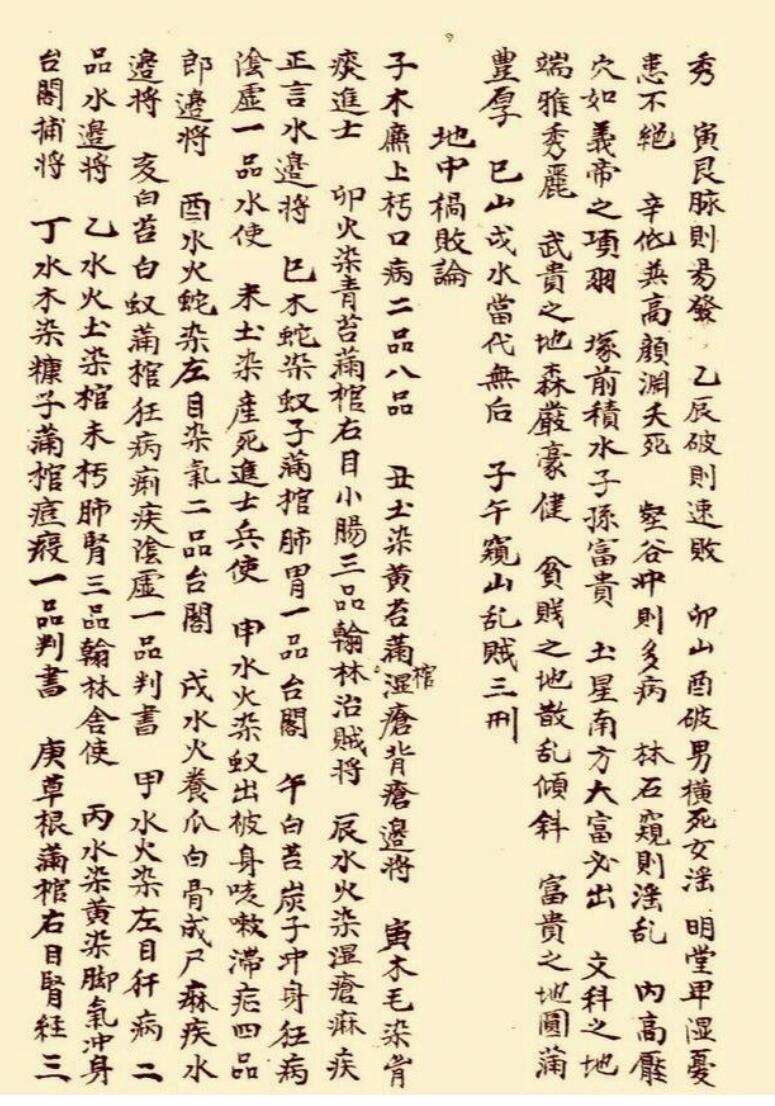 秀 寅艮脉則易發 乙辰破則速敗 卯山酉破男橫死女淫 明堂卑湿憂
患不絶 辛他兼高顔淵夭死 壑谷冲則多病 林石窺則淫乱 内高壓
穴如義帝之項羽 塚前積水子孫富貴 土星南方大富必出 文科之地
端雅秀麗 武貴之地森嚴豪健 貧賎之地散乱傾斜 富貴之地圓滿
豊厚 巳山戌水當代無后 子午窺山乱賊三刑
地中禍敗論
子木廉上朽口病二品八品 丑土染黄苔滿棺湿瘡背瘡邊将 寅木毛染骨
痰進士 卯火染青苔滿棺右目小腸三品翰林治賊将 辰水火染湿瘡痳疾
正言水邊将 巳木蛇染蚁子滿棺肺胃一品台閣 午白苔炭子冲身狂病
陰虚一品水使 未土染産死進士兵使 申水火染蚁出被身咳嗽滯疟四品
郎邊将 酉水火蛇染左目染氣二品台閣 戌水火養爪白骨成尸痳疾水
邊将 亥白苔白蚁滿棺狂病痢疾陰虚一品判書 甲水火染左目肝病二
品水邊将 乙水火土染棺未朽肺腎三品翰林舎使 丙水染黄染脚氣冲身
台閣捕将 丁水木染糠子滿棺疽瘢一品判書 庚草根滿棺右目腎経三